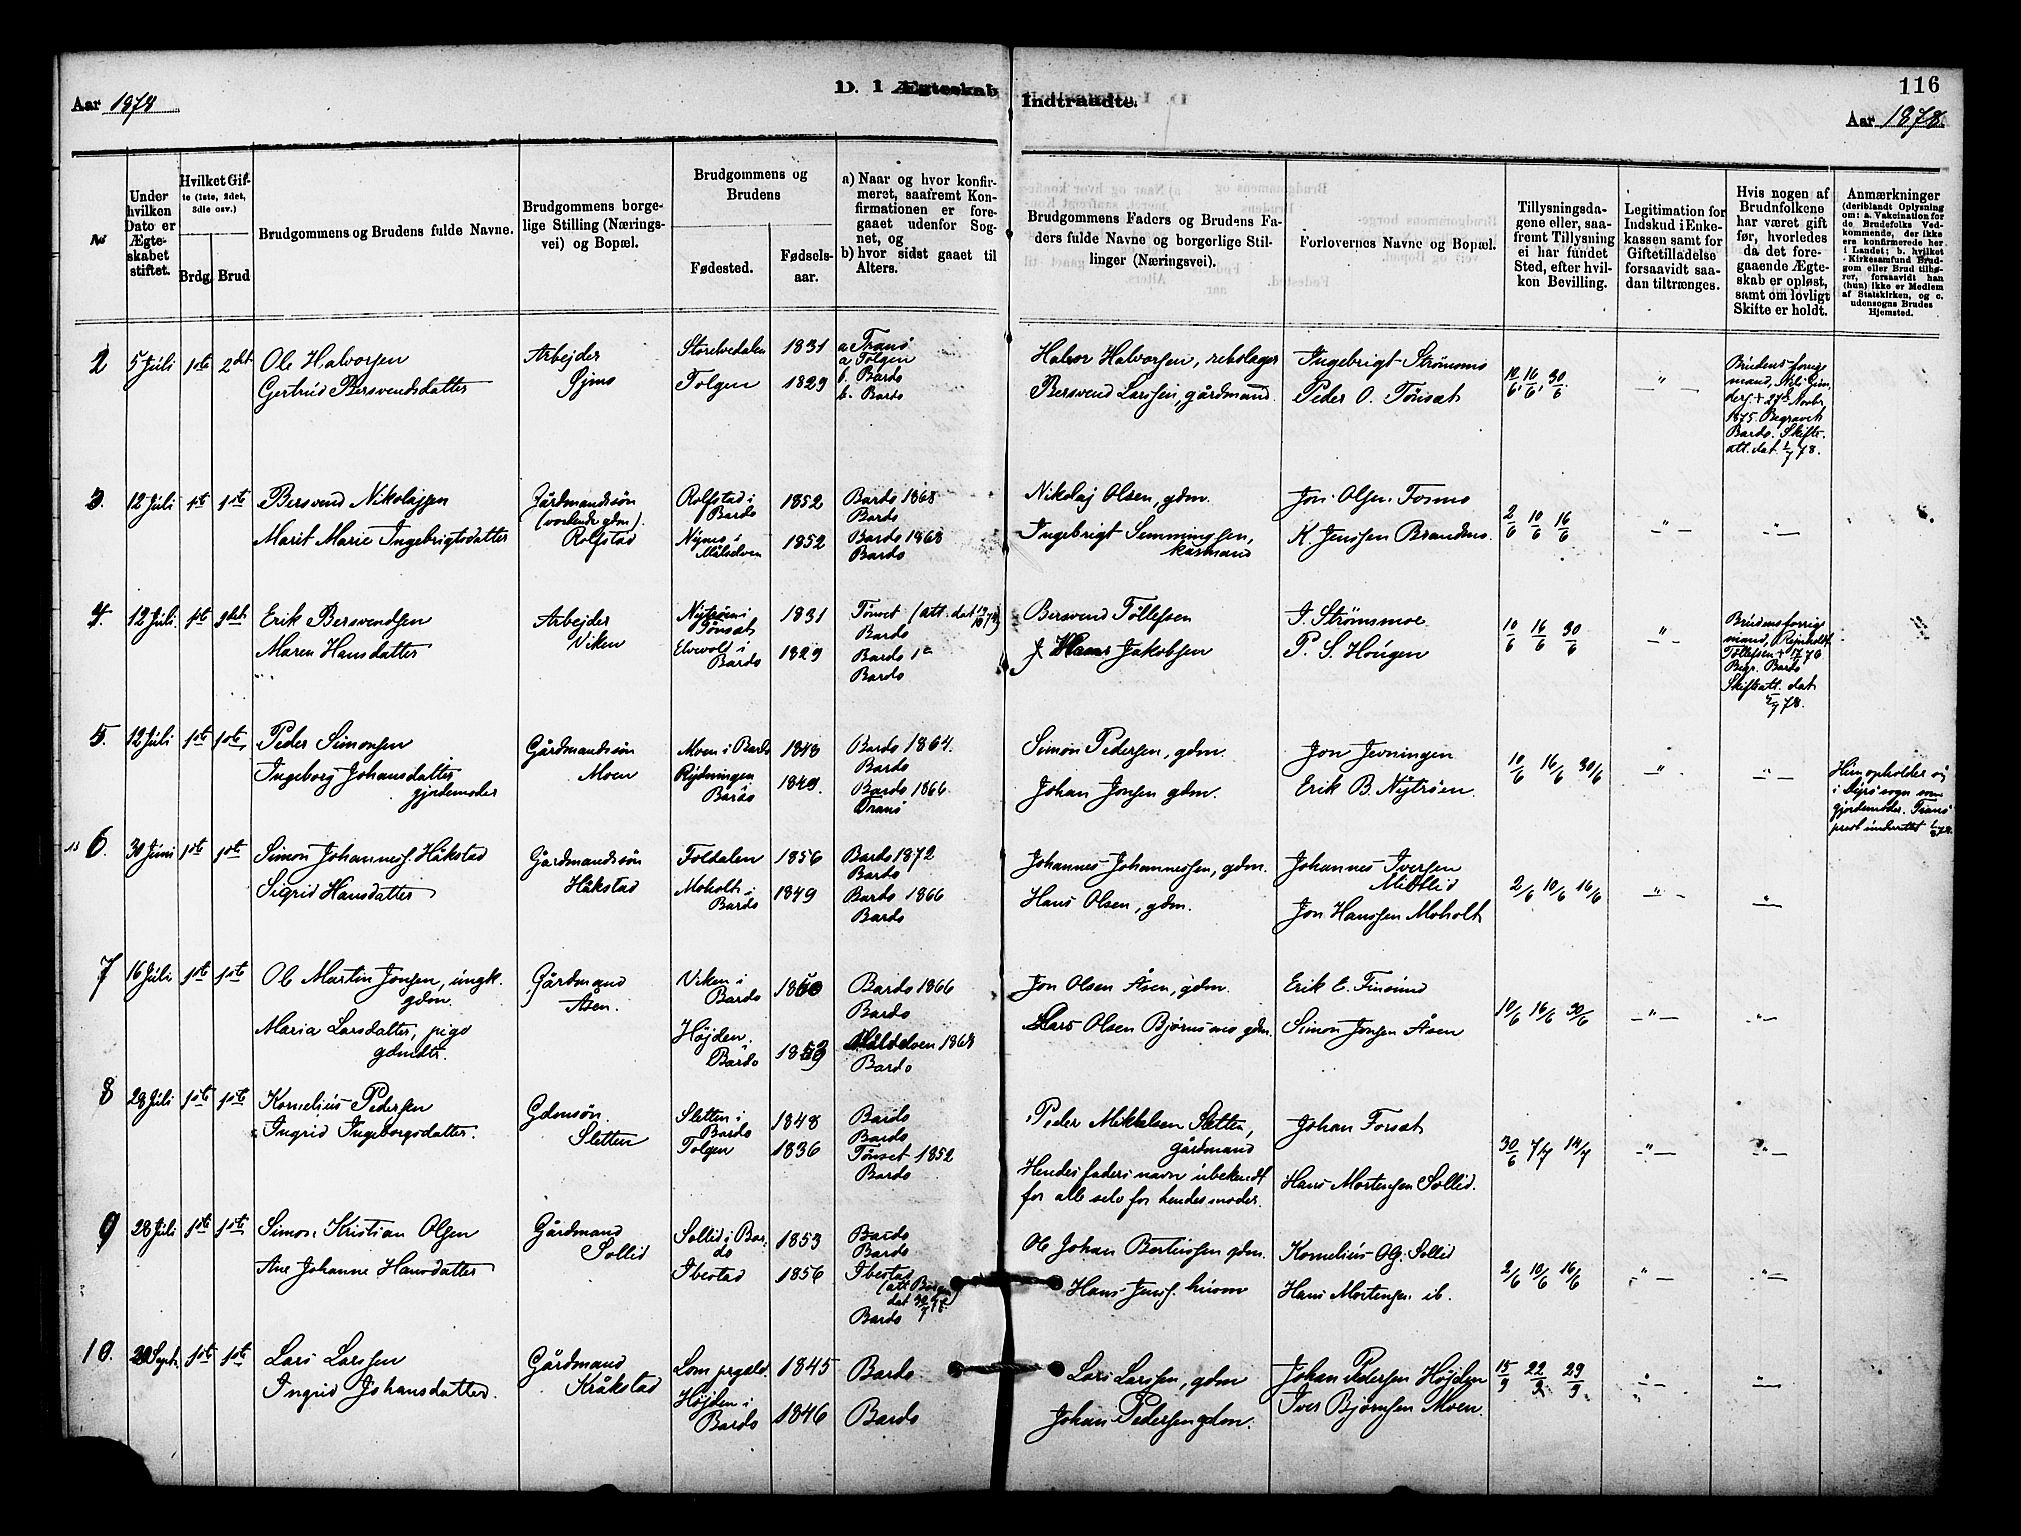 116
Aar 1878
D. I Ægteskab Indtraadte.
Aar 1878.
№
Under hvilken Dato er Ægteskabet stiftet.
Hvilket Gifte (1ste, 2det, 3die osv.)
Brdg.
Brud
Brudgommens og Brudens fulde Navne.
Brudgommens borgelige Stilling (Næringsvei) og Bopæl.
Brudgommens og Brudens
Fødested.
Fødselsaar.
a) Naar og hvor konfirmeret, saafremt Konfirmationen er foregaaet udenfor Sognet, og
b) hvor sidst gaaet til Alters.
Brudgommens Faders og Brudens Faders fulde Navne og borgerlige Stillinger (Næringsvei).
Forlovernes Navne og Bopæl.
Tillysningsdagene eller, saafremt Tillysning ei har fundet Sted, efter hvilkon Bevilling.
Legitimation for Indskud i Enkekassen samt for Giftetilladelse forsaavidt saadan tiltrænges.
Hvis nogen af Brudnfolkene har været gift før, hvorledes da det foregaaende Ægteskab er opløst, samt om lovligt Skifte er holdt.
Anmærkninger (deriblandt Oplysning om: a. Vakcination for de Brudefolks Vedkommende, der ikke ere konfirmerede her i Landet; b. hvilket Kirkesamfund Brudgom eller Brud tilhører, forsaavidt han (hun) ikke er Medlem af Statskirken, og c. udensogns Brudes Hjemsted.
2 5 Juli 1ste 2det Ole Halvorsen
Gertrud Bersvendsdatter
Arbejder
Storelvedalen 1831
Tolgen 1829
a Tranø
a Tolgen
b. Bardo
b. Bardo
Halvor Halvorsen, rebslager
Bersvend Larssen, gårdmand.
Ingebrigt Strømsmo
Peder O. Tønsæt
10/6, 16/6, 30/6
— " —
Brudens forrige
mand,
+ 27de Novbr
1875. Begravet
Bardo. Skifte-
att. dat. 78.
3. 12 Juli 1ste 1ste Bersvend Nikolajsen
Marit Marie Ingebrigtsdatter
Gårdmandssøn
(vordende gdm).
Rolfstad
Rolfstad i Bardo 1852
Nymo i Målselven 1852
Bardo 1868
Bardo
Bardo 1868
Bardo
Nikolaj Olsen, gdm.
Ingebrigt Semmingsen,
Jon Olsen Fosmo
K. Jenssen Brandmo.
2/6 10/6 16/6
— " —
— " —
4. 12 Juli 1ste 2det Erik Bersvendsen
Maren Hansdatter
Arbejder
Viken
Nytrøen i Tønsæt 1831
Elvevold i Bardo 1829
Tønset (att. dat
Bardo
Bardo
Bardo
Bersvend Tollefsen
Hans Jakobsen
I. Strømsmoe
P. S. Hougen
10/6 16/6 30/6
— " —
Brudens forrige
mand, Rejnholdt
Tollefsen +
Begr. Bardo
Skifteatt. dat
78.
5. 12 Juli 1ste 1ste, Peder Simonsen
Ingeborg Johansdatter
gjordemoder
Gårdmandssøn
Moen
Moen i Bardo 1848
Rydningen Bardo 1849.
Bardo 1864.
Bardo
Bardo 1866
Tranø
Simon Pedersen, gdm.
Johan Jonsen gdm.
Jon Jevningen
Erik B. Nytrøen.
10/6 16/6 30/6
— " —
— " —
Hun opholder sig
i Dyrø sogn som
gjordemoder. Tranø
prest
6. 30 Juni 1ste 1ste Simon Johannes. Håkstad
Sigrid Hansdatter
Gårdmandssøn
Håkstad
Foldalen 1856
Moholt i Bardo 1849
Bardo 1872
Bardo
Bardo 1866
Bardo
Johannes Johannessen, gdm.
Hans Olsen, gdm.
Johannes Iversen
Midtlid
Jon Hanssen Moholt
2/6 10/6 16/6
— " —
— " —
7 16 Juli 1ste 1ste Ole Martin Jonsen, ungk.
gdm.
Maria Larsdatter, pige
gdmdtr.
Gårdmand
Åsen.
Viken i Bardo 1850
Højden. Bardo 1853
Bardo 1866
Bardo
Målselven 1868
Bardo
Jon Olsen Åsen, gdm.
Lars Olsen Bjørnsmo gdm.
Erik E. Finsund
Simon Jonsen Åsen
10/6 16/6 30/6
— " —
— " —
8 28 Juli 1ste 1ste Kornelius Pedersen
Ingrid Ingeborgsdatter.
Gdmsøn.
Sletten
Sletten i Bardo 1848
Tolgen 1836
Bardo
Bardo
Tønset 1852
Bardo
Peder Mikkelsen Sletten,
gårdmand
Hendes faders navn ubekendt
for alle selv for hendes moder.
Johan Forsæt
Hans Mortensen Sollid.
30/6 7/7 14/7
— " —
— " —
9 28 Juli 1ste 1ste Simon Kristian Olsen
Ane Johanne Hansdatter
Gårdmand
Sollid
Sollid i Bardo 1853
Ibestad 1856
Bardo
Bardo
Ibestad
Bardo
Ole Johan Bertinssen gdm.
Hans Jenss. husm
Kornelius Ols. Sollid
Hans Mortensen ib.
2/6 10/6 16/6
— " —
— " —
10. Septr. 1ste 1ste Lars Larssen
Ingrid Johansdatter.
Gårdmand
Kråkstad
Lom prgæld. 1845
Højden i Bardo 1846
Bardo
Bardo
Lars Larssen, gdm
Johan Pedersen gdm.
Johan Pedersen Højden
Iver Bjørnsen Moen.
15/9 22/9 29/9
— " —
— " —